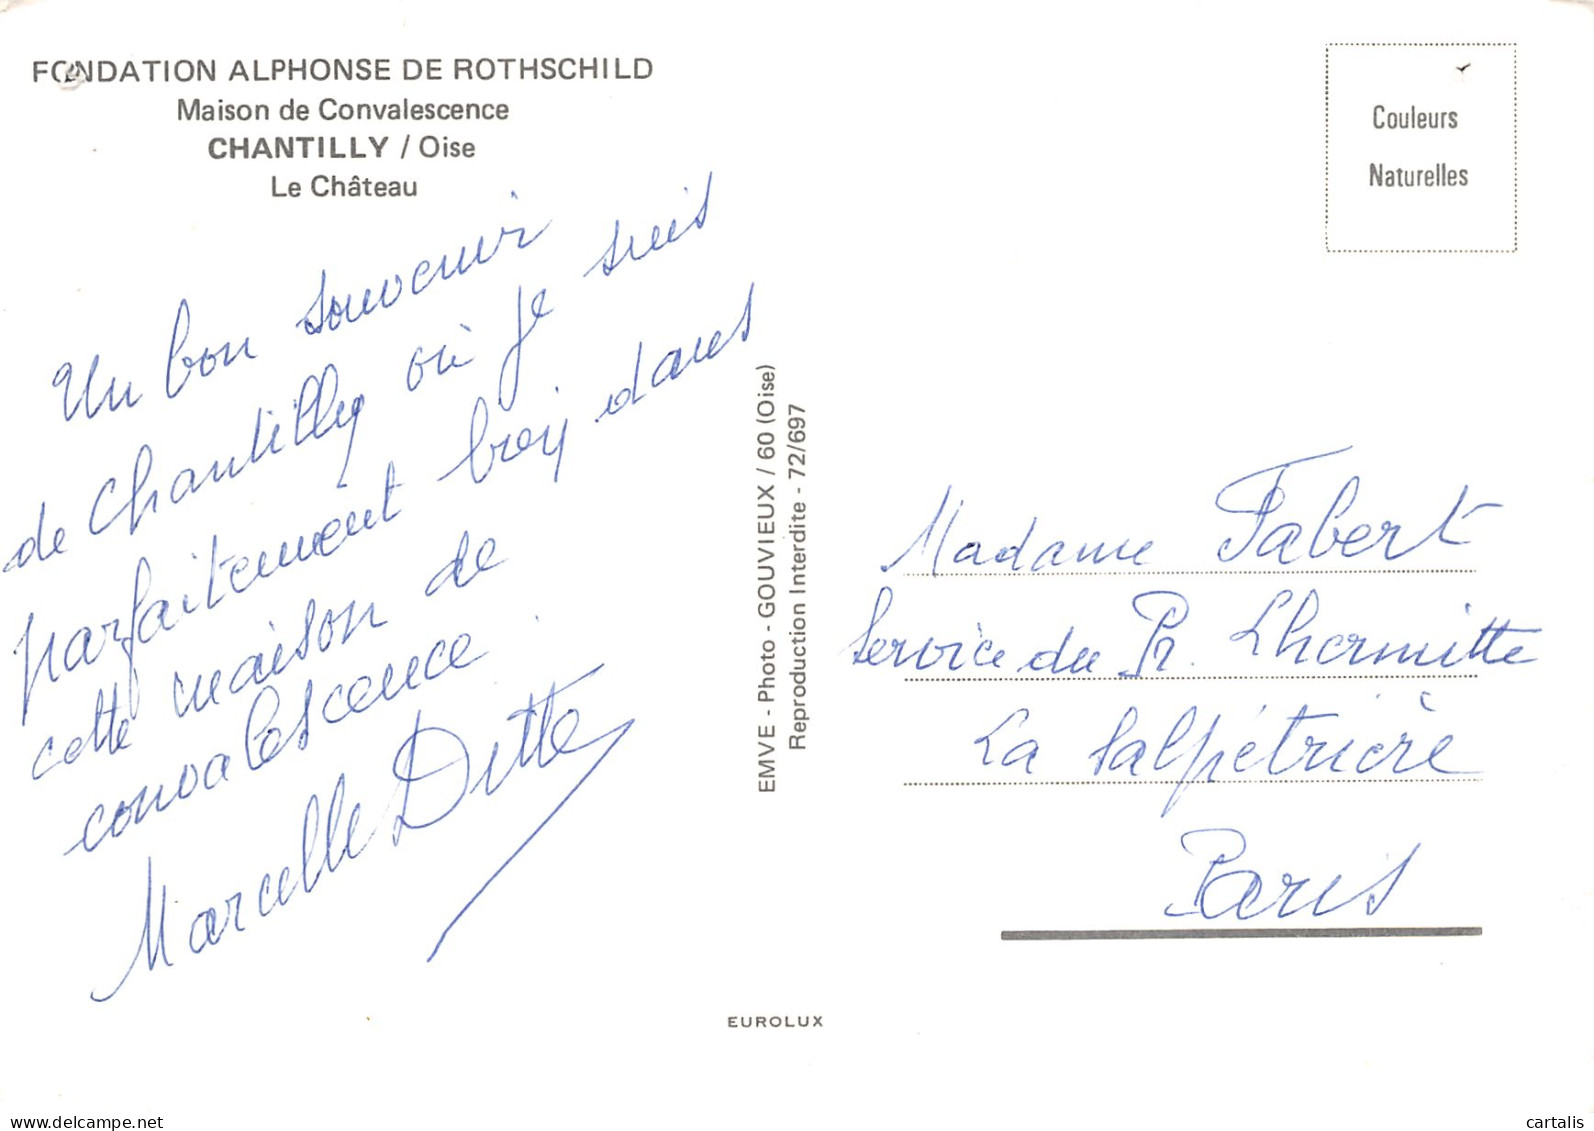 FONDATION ALPHONSE DE ROTHSCHILD
Maison de Convalescence
CHANTILLY / Oise
Le Château
Un bon souvenir
de Chantilly où je suis
parfaitement bien dans
cette maison de
convalescence.
Marcelle Ditte
EMVE - Photo - GOUVIEUX / 60 (Oise)
Reproduction Interdite - 72/697
Couleurs
Naturelles
Madame Fabert
Service du Pr. Lhermitte
La Salpétrière
Paris
EUROLUX
delcampe.net
cartalis